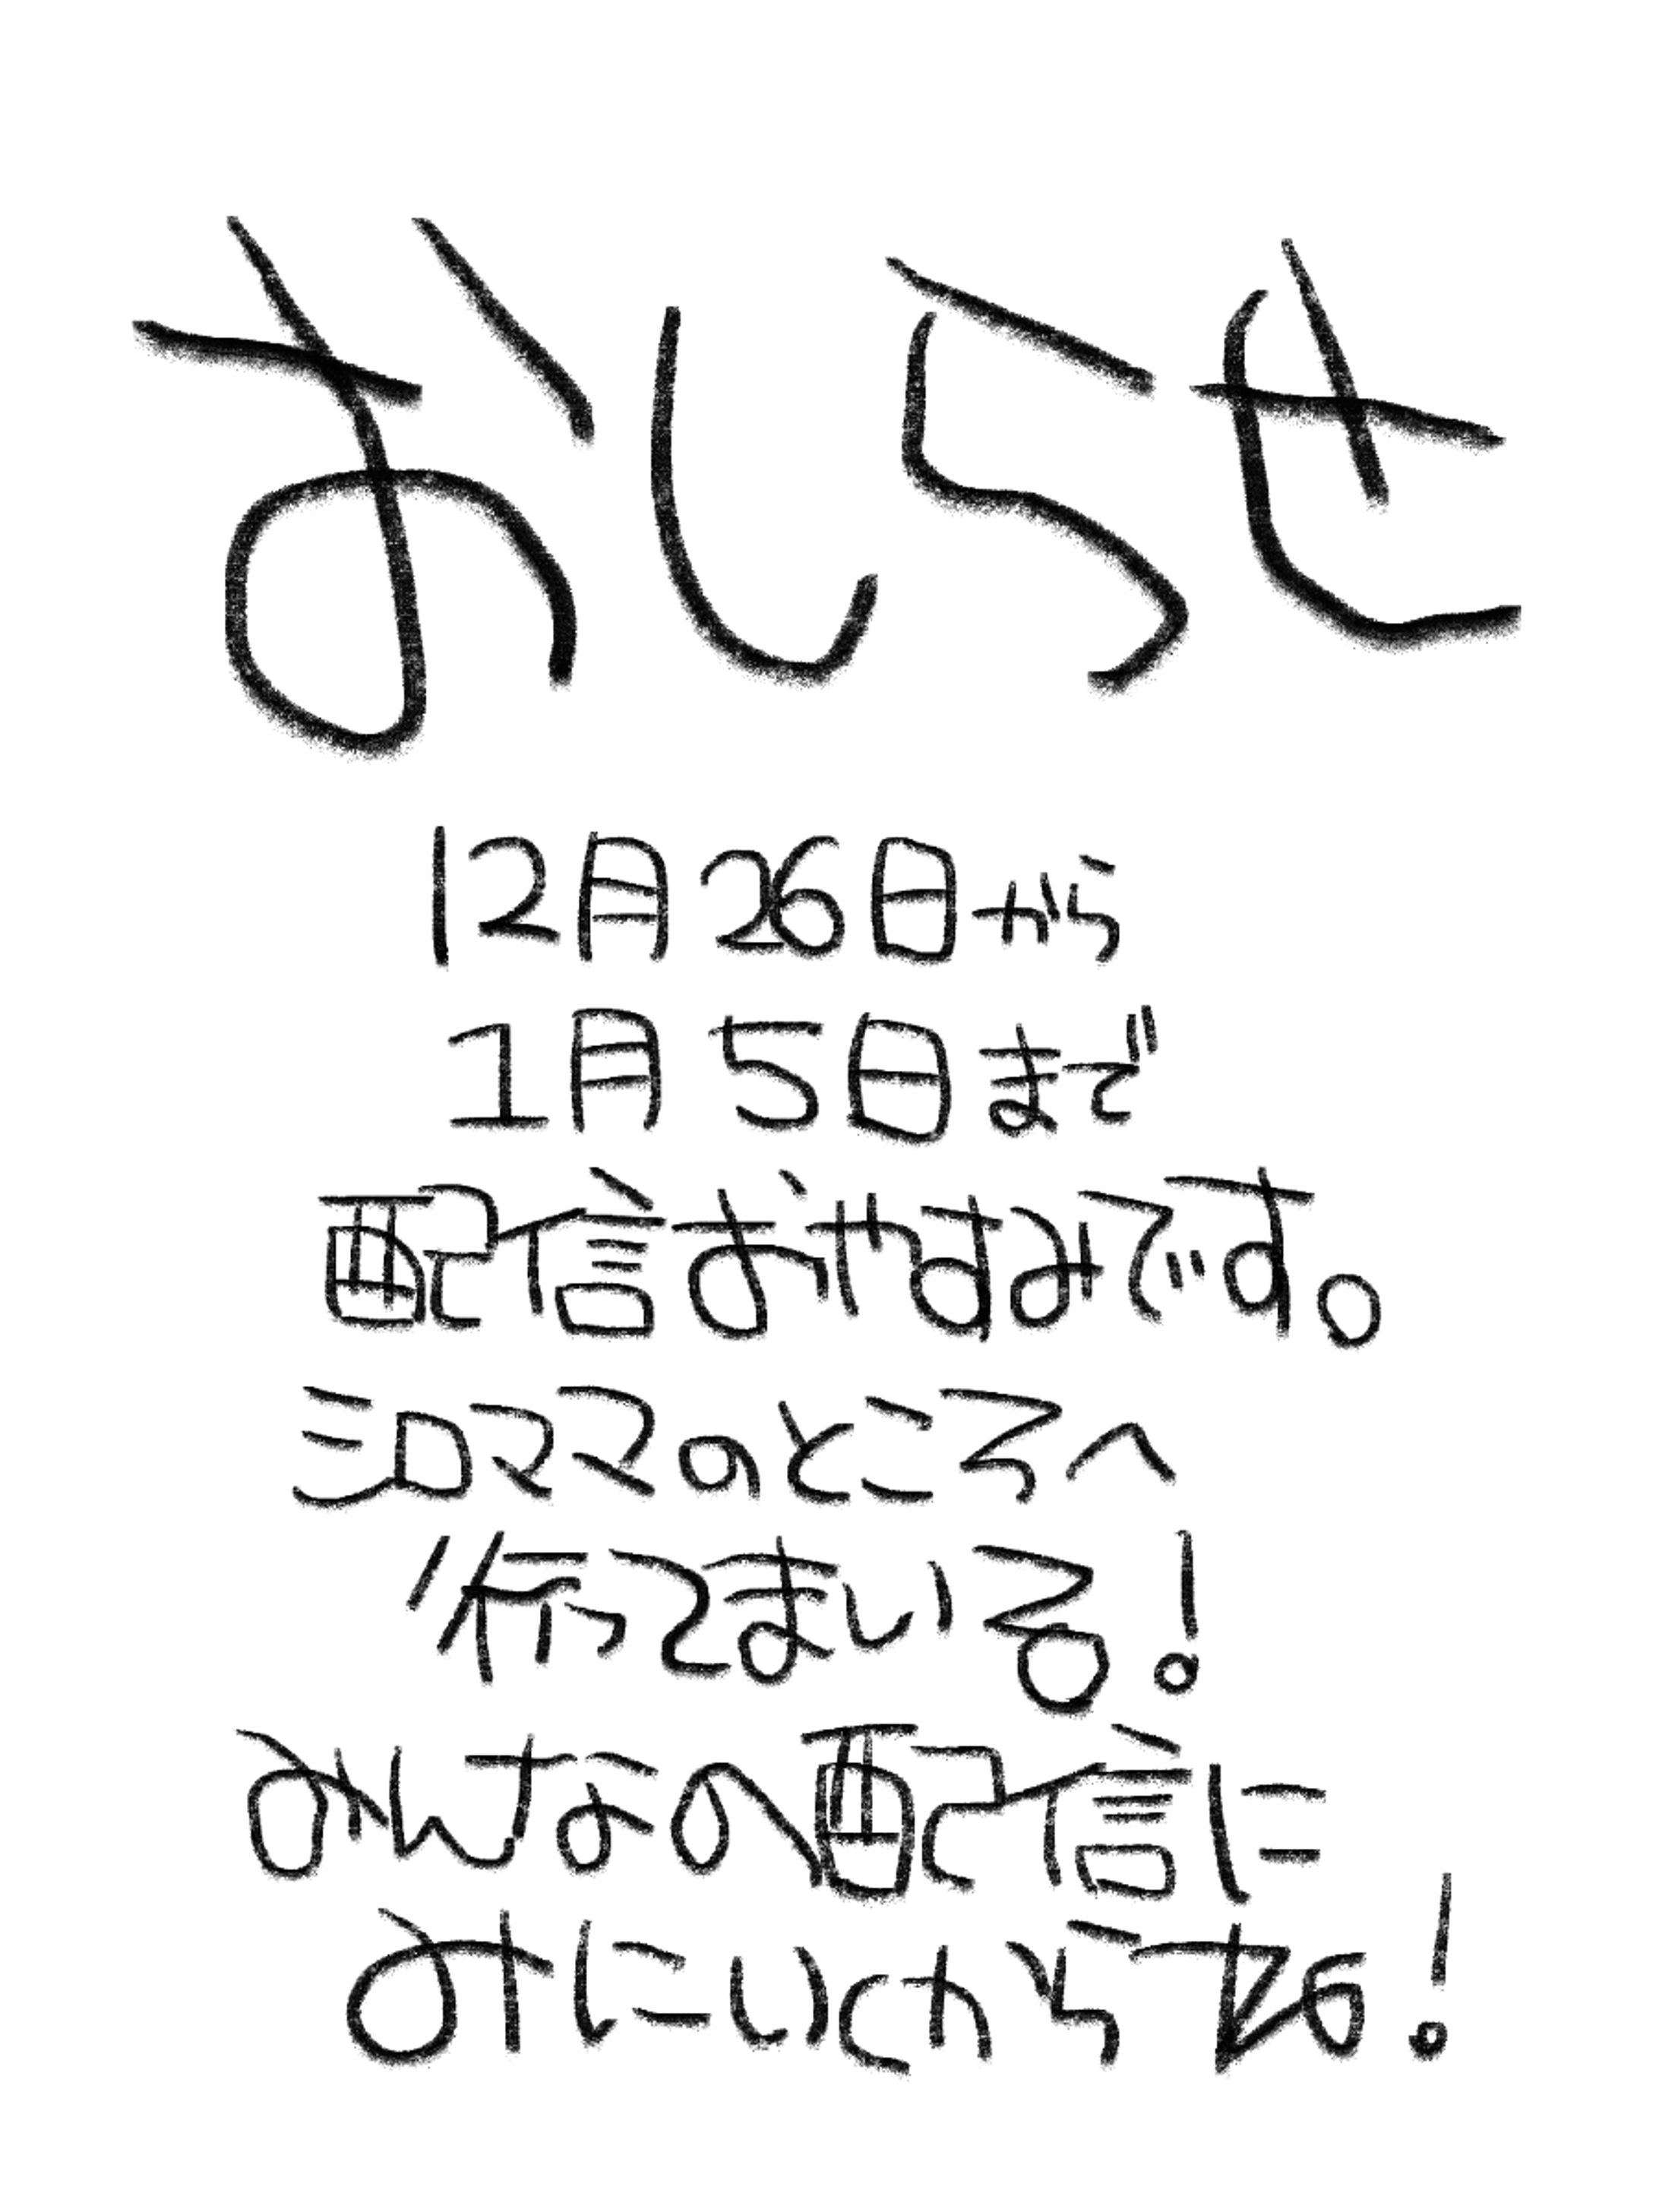 おしらせ
12月26日から
1月5日まで
配信おやすみです。
シロママのところへ
行ってまいる!
みんなの配信に
みにいくからね!